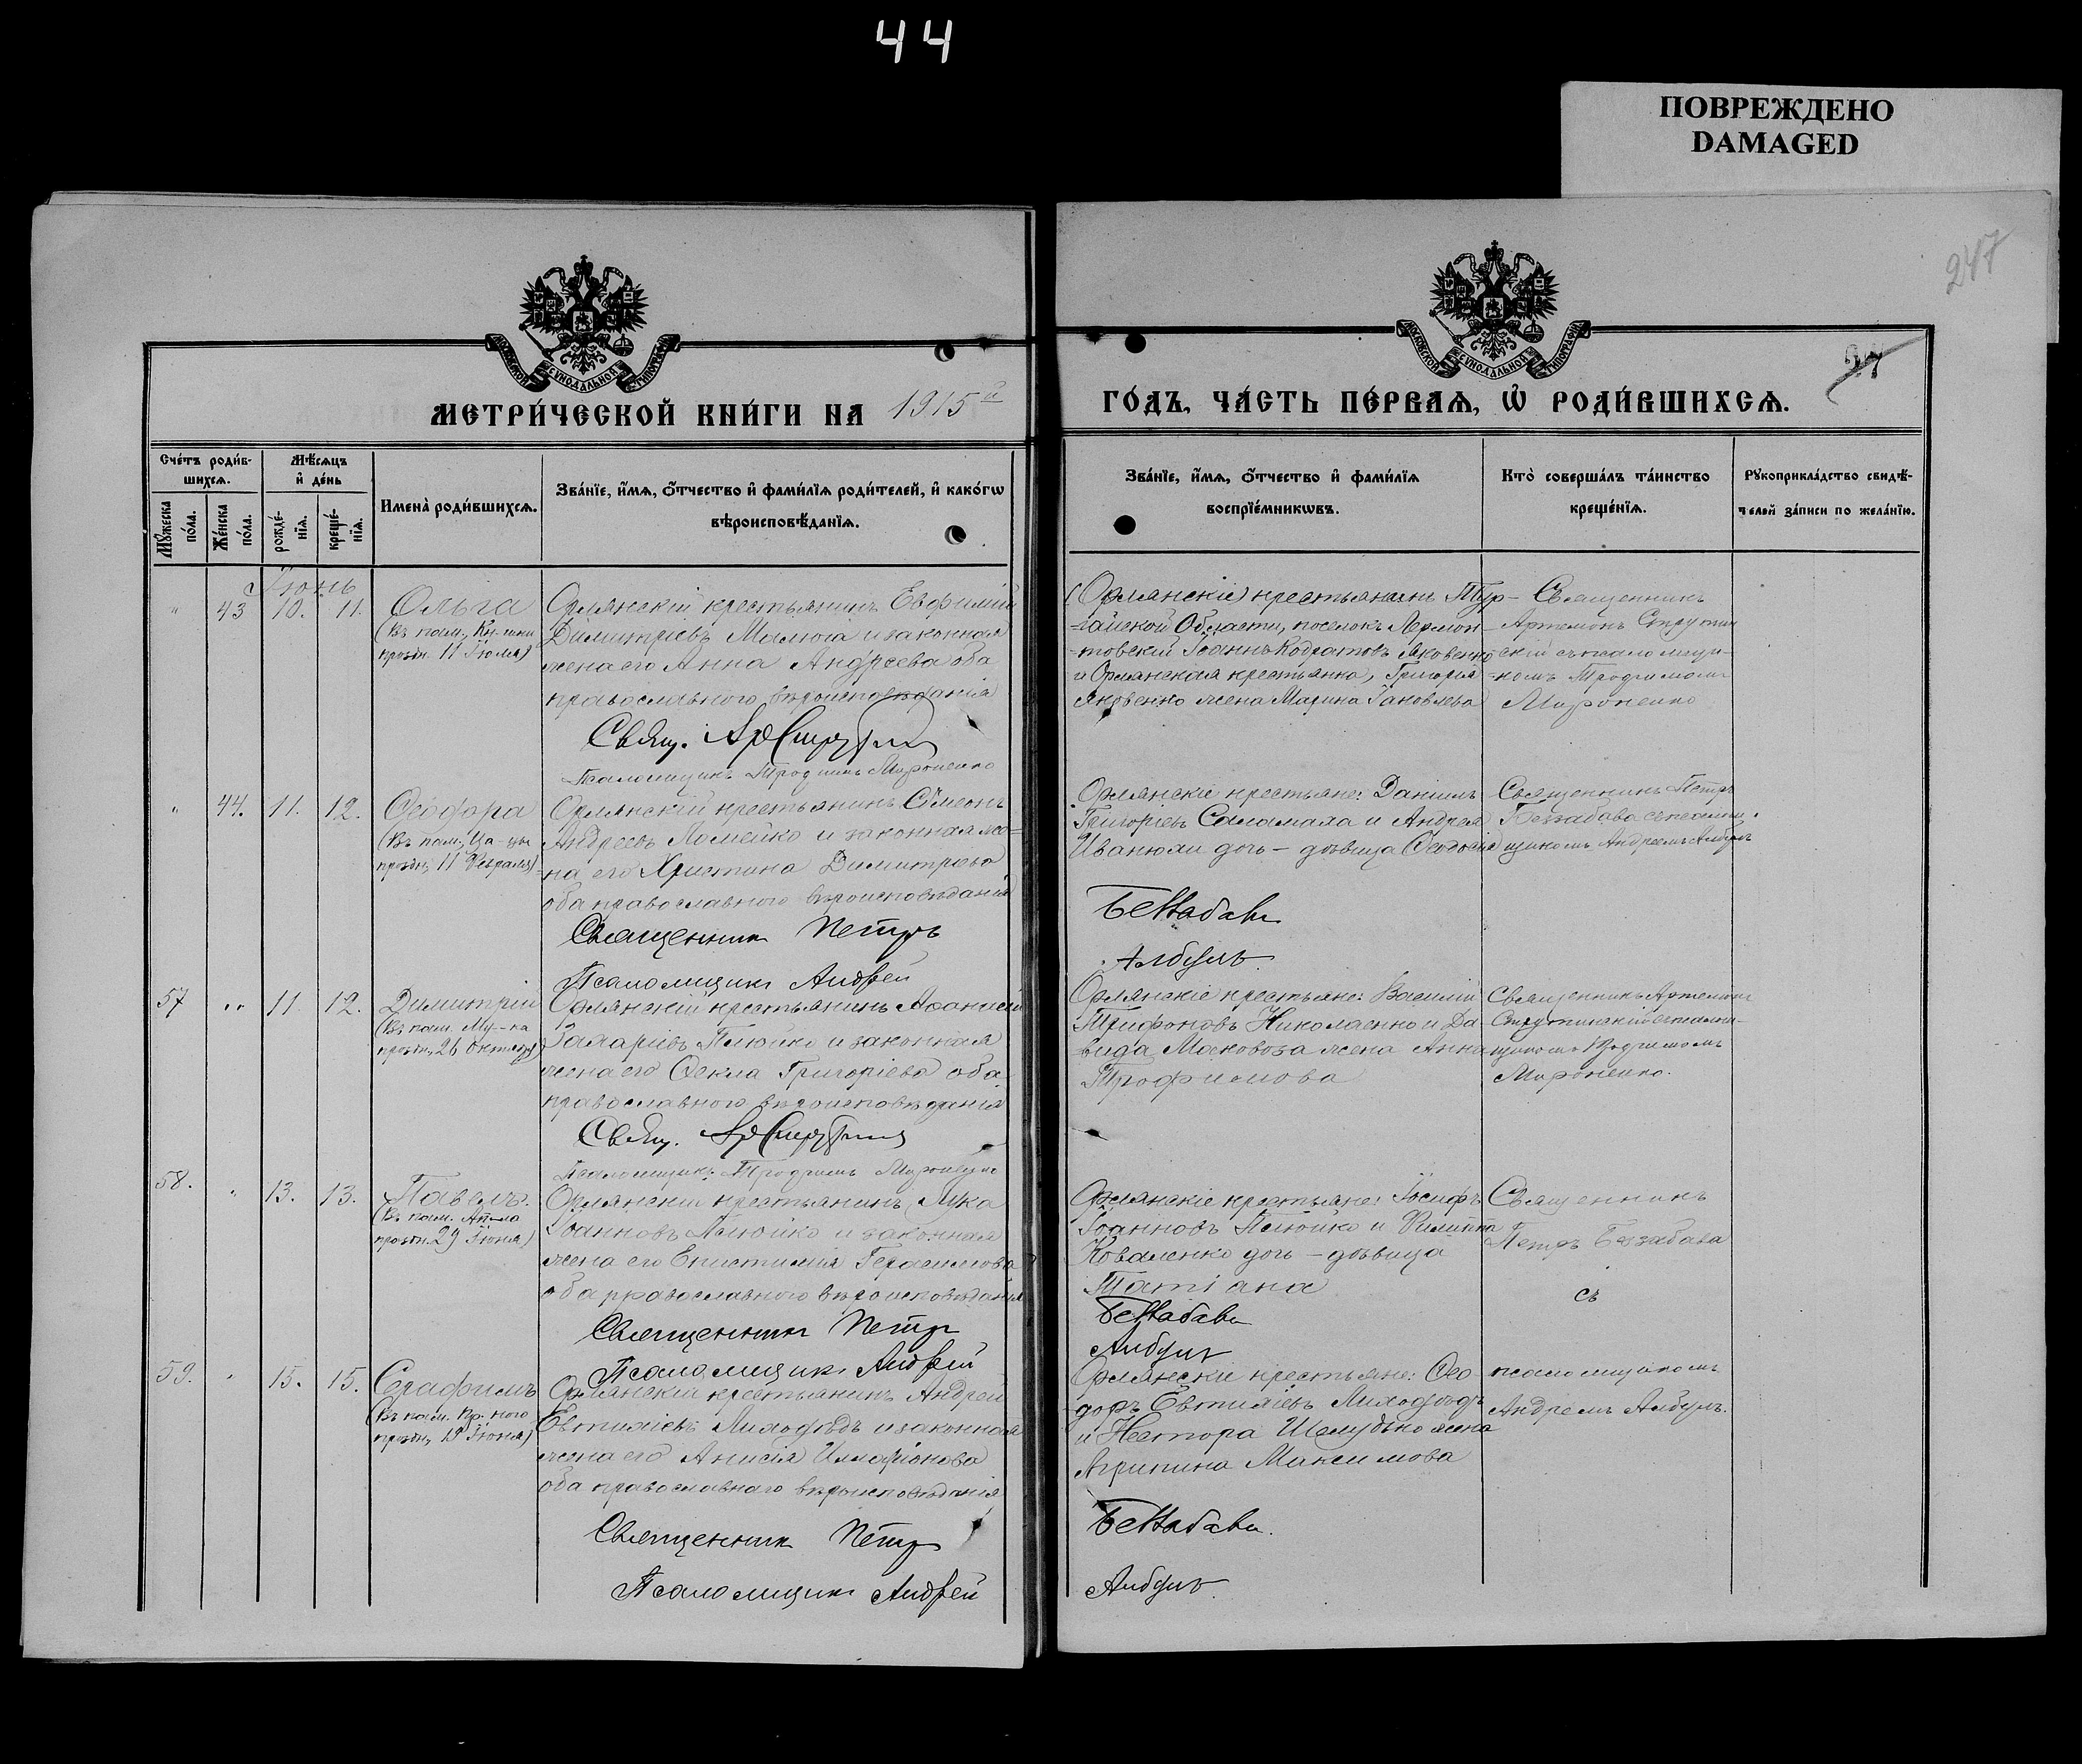 44
ПОВРЕЖДЕНО
DAMAGED
247
МЕТРИ́ЧЕСКОЙ КНИ́ГИ НА 1915й
ГО́ДЪ, ЧА́СТЬ ПЕ́РВАѦ, Ѡ҆ РОДИ́ВШИХСѦ.
Сче́тъ роди́в-
шихсѧ.
Мѣ́сѧцъ
и҆ де́нь
Мꙋ́жеска
по́ла.
Же́нска
по́ла.
рожде́-
нїѧ.
креще́-
нїѧ.
Имена̀ роди́вшихсѧ.
Зва́нїе, и҆́мѧ, ѻ҆́тчество и҆ фами́лїѧ роди́телей, и҆ како́гѡ
вѣроисповѣ́данїѧ.
Зва́нїе, и҆́мѧ, ѻ҆́тчество и҆ фами́лїѧ
воспрїе́мникѡвъ.
Кто̀ соверша́лъ та́инство
креще́нїѧ.
Рꙋкоприкла́дство свидѣ́-
телей за́писи по жела́нїю.
Іюнь
" 43 10. 11.
Ольга
(Въ пам. Кн-гини
празн. 11 Іюля)
Орлянскій крестьянинъ Евфимій
Димитріевъ Малюга и законная
жена его Анна Андреева оба
православнаго вѣроисповѣданія
Свящ.
Псаломщикъ Трофимъ Мироненко
(Орлянскіе) крестьяне Тур-
-гайской Области, поселокъ Лермон-
-товскій Іоаннъ Кодратовъ Яковенко
и Орлянская крестьянка, Григорія
Яковенко жена Марина Іаковлева
Священникъ
Артемонъ Струтин
скій съ псаломщи-
-комъ Трофимомъ
Мироненко
" 44. 11. 12.
Ѳеодора
(Въ пам. Ца-цы
празн. 11 Февраля)
Орлянскій крестьянинъ Сѵмеонъ
Андреевъ Ломейко и законная же-
-на его Христина Димитріева
оба православнаго вѣроисповѣданія
Священникъ Петръ
Псаломщикъ Андрей
Орлянскіе крестьяне: Даніилъ
Григоріевъ Саламаха и Андрея
Иванюги дочь - дѣвица Ѳеодосія
Беззабава
Албулъ.
Священникъ Петръ
Беззабава съ псалом-
щикомъ Андреемъ Албулъ
57 " 11 12.
Димитрій
(Въ пам. Му-ка
празн. 26 Октября)
Орлянскій крестьянинъ Аѳанасій
Захаріевъ Плюйко и законная
жена его Ѳекла Григоріева оба
православнаго вѣроисповѣданія
Свящ.
Псаломщикъ Трофимъ Мироненко
Орлянскіе крестьяне: Василій
Трифоновъ Николаенко и Да-
вида Маковоза жена Анна
Трофимова
Священникъ Артемонъ
Струтинскій съ псалом-
щикомъ Трофимомъ
Мироненко.
58. " 13. 13.
Павелъ.
(Въ пам. Ап-ла
празн. 29 Іюня)
Орлянскій крестьянинъ Лука
Іоанновъ Плюйко и законная
жена его Епистимія Герасимова
оба православнаго вѣроисповѣданія
Священникъ Петръ
Псаломщикъ Андрей
Орлянскіе крестьяне: Іосифъ
Іоанновъ Плюйко и Филиппа
Коваленко дочь - дѣвица
Татіана
Беззабава
Албулъ
Священникъ
Петръ Беззабава
съ
59. " 15. 15.
Серафимъ
(Въ пам. Пр. наго
празн. 19 Іюля)
Орлянскій крестьянинъ Андрей
Евтиміевъ Лиходѣдъ и законная
жена его Анисія Иларіонова
оба православнаго вѣроисповѣданія
Священникъ Петръ
Псаломщикъ Андрей
Орлянскіе крестьяне: Ѳео-
доръ Евтиміевъ Лиходѣдъ
и Нестора Шелудько жена
Агрипина Максимова
Беззабава.
Албулъ.
псаломщикомъ
Андреемъ Албулъ.